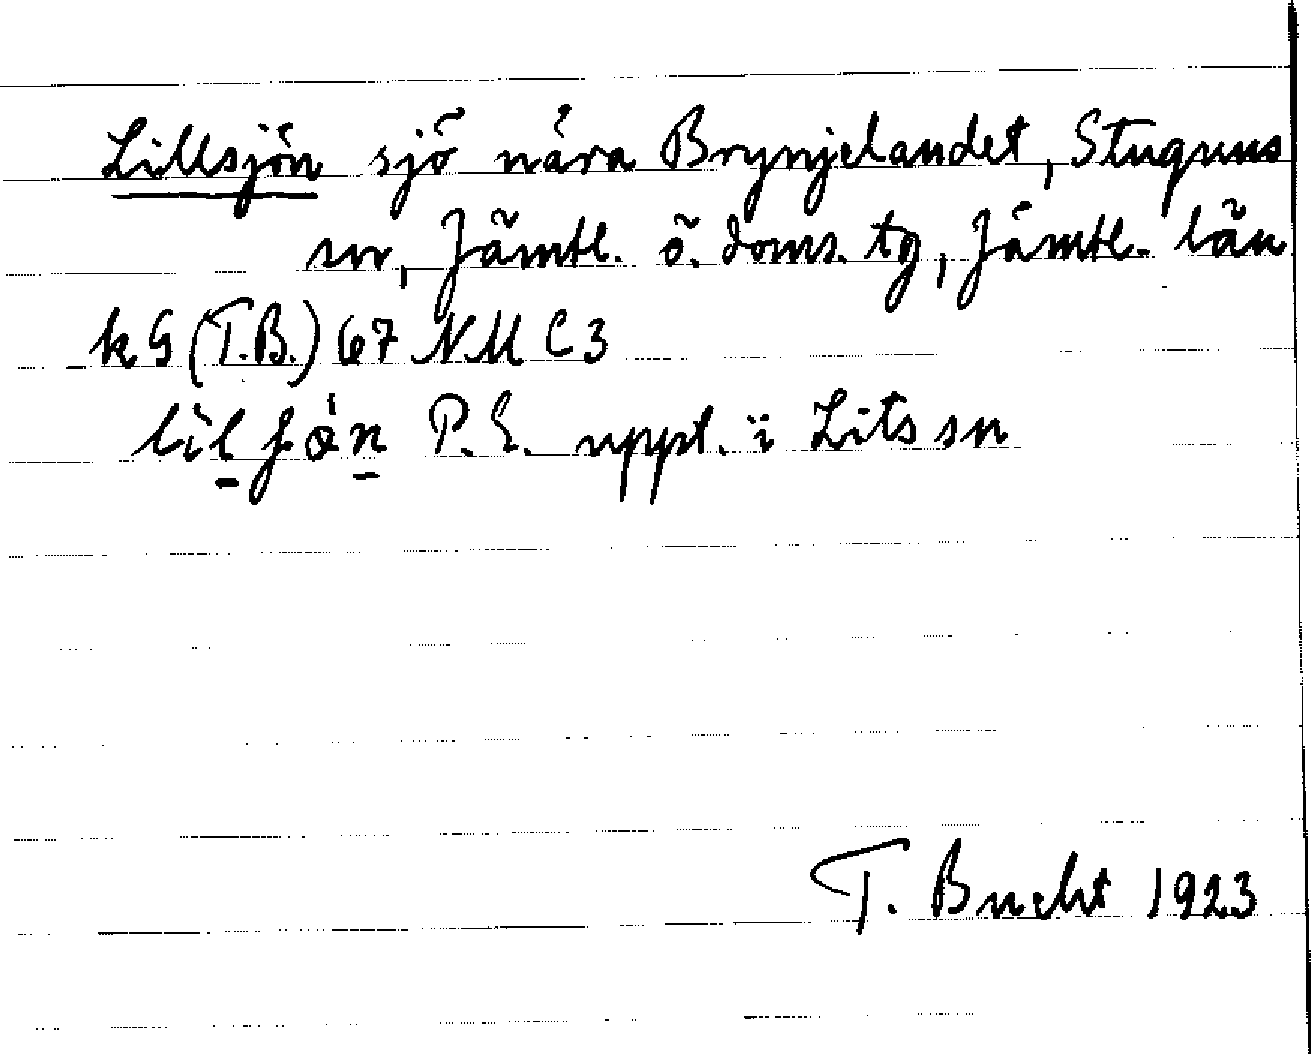 Lillsjön sjö nära Brynjelandet, Stuguns
sn, Jämtl. ö. doms. tg, Jämtl. län
k G (T.B.) 67 NM C3
lìl ʃǿn P. E. uppt. i Lits sn
T. Bucht 1923